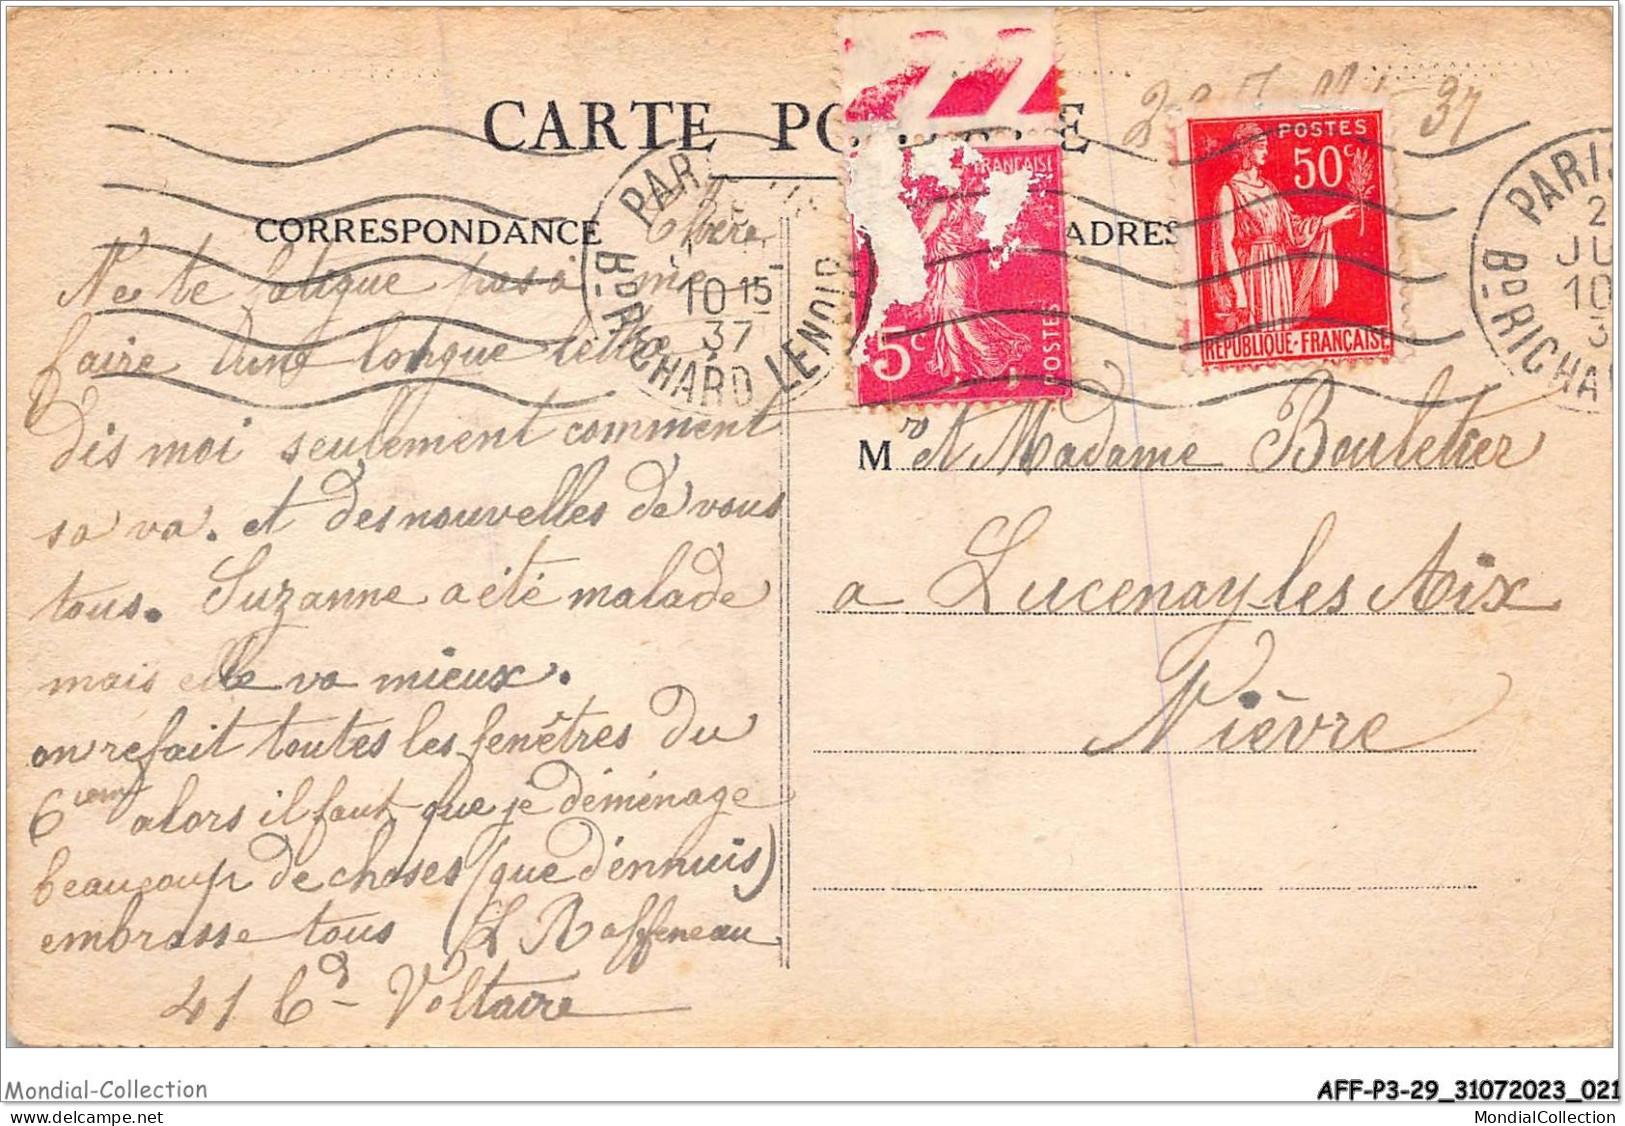 CARTE
CORRESPONDANCE
ADRES
FRANCAISE
5c
POSTES
POSTES
50c
REPUBLIQUE-FRANÇAISE
PAR
10 15
37
Bd RICHARD LENOIR
PARIS
2
JU
10
3
Bd RICHA
37
Ne te fatigue pas à me
faire une longue lettre
dis moi seulement comment
sa va. et des nouvelles de vous
tous. Suzanne a été malade
mais elle va mieux.
on refait toutes les fenêtres du
6iem alors il faut que je déménage
beaucoup de choses (que d'ennuis)
embrasse tous L Raffeneau
41 Bd Voltaire
Mr et Madame Bouletier
a Lucenay-les Aix
Nièvre
Mondial-Collection
AFF-P3-29_31072023_021
www.delcampe.net
MondialCollection